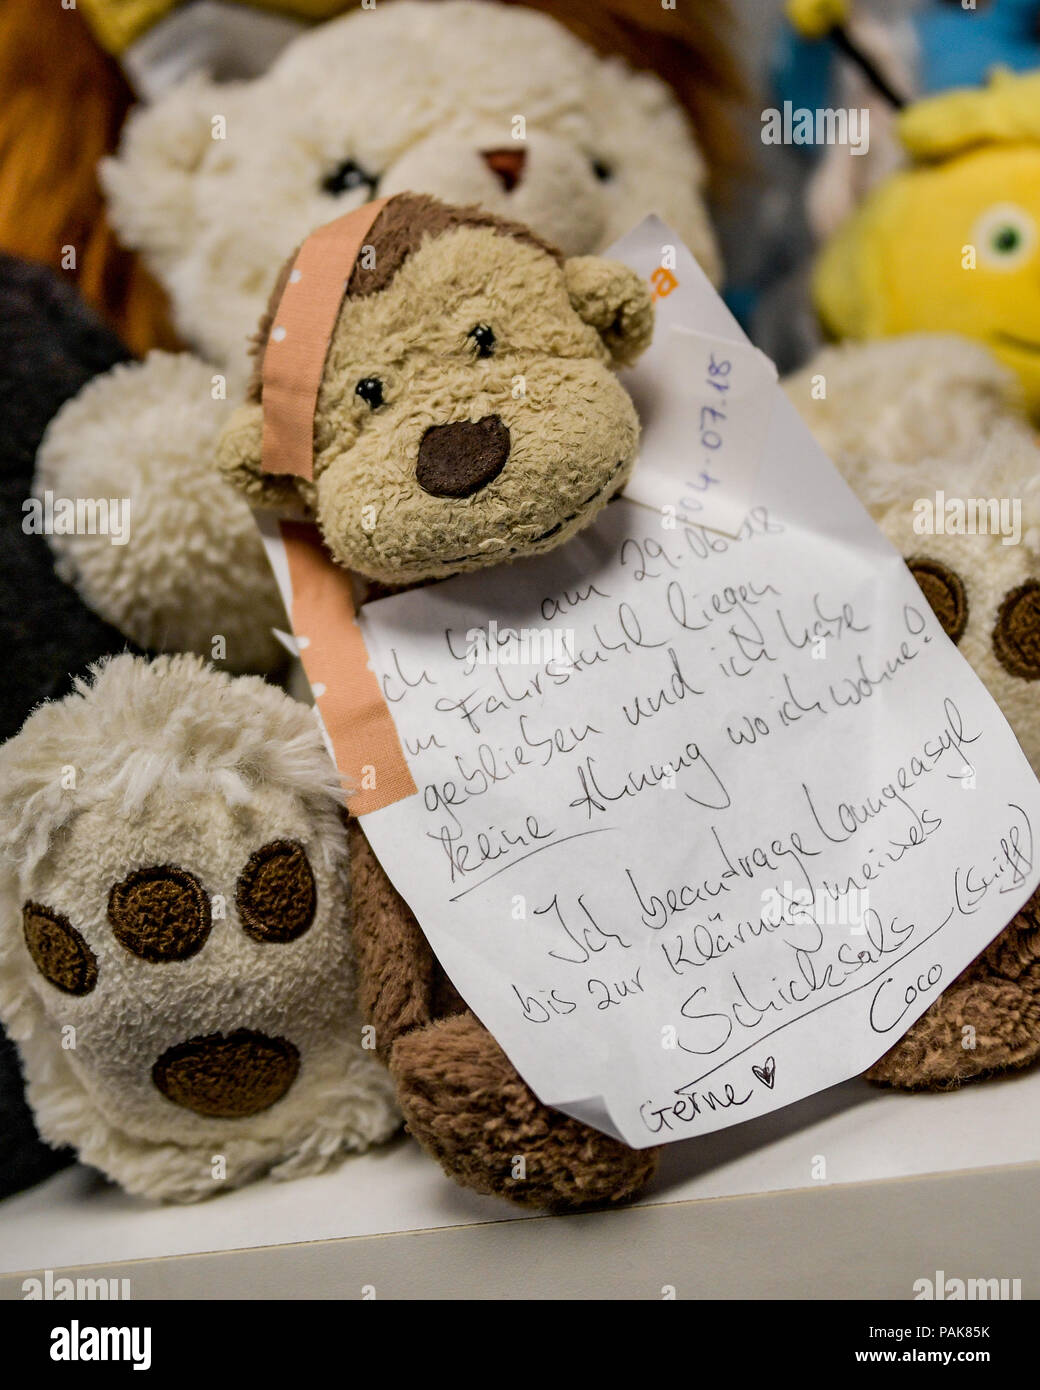 a
04.07.18
Ich bin am 29.06.18
im Fahrstuhl liegen
geblieben und ich habe
keine Ahnung wo ich wohne!
Ich beantrage Loungeasyl
bis zur Klärung meines
Schicksals (sniff)
Coco
Gerne ♥
alamy
alamy
Image ID: PAK85K
www.alamy.com